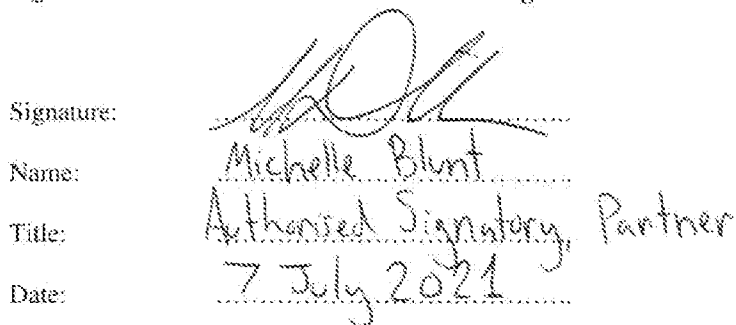 Signature:
Name: Michelle Blunt
Title: Authorised Signatory, Partner
Date: 7 July 2021